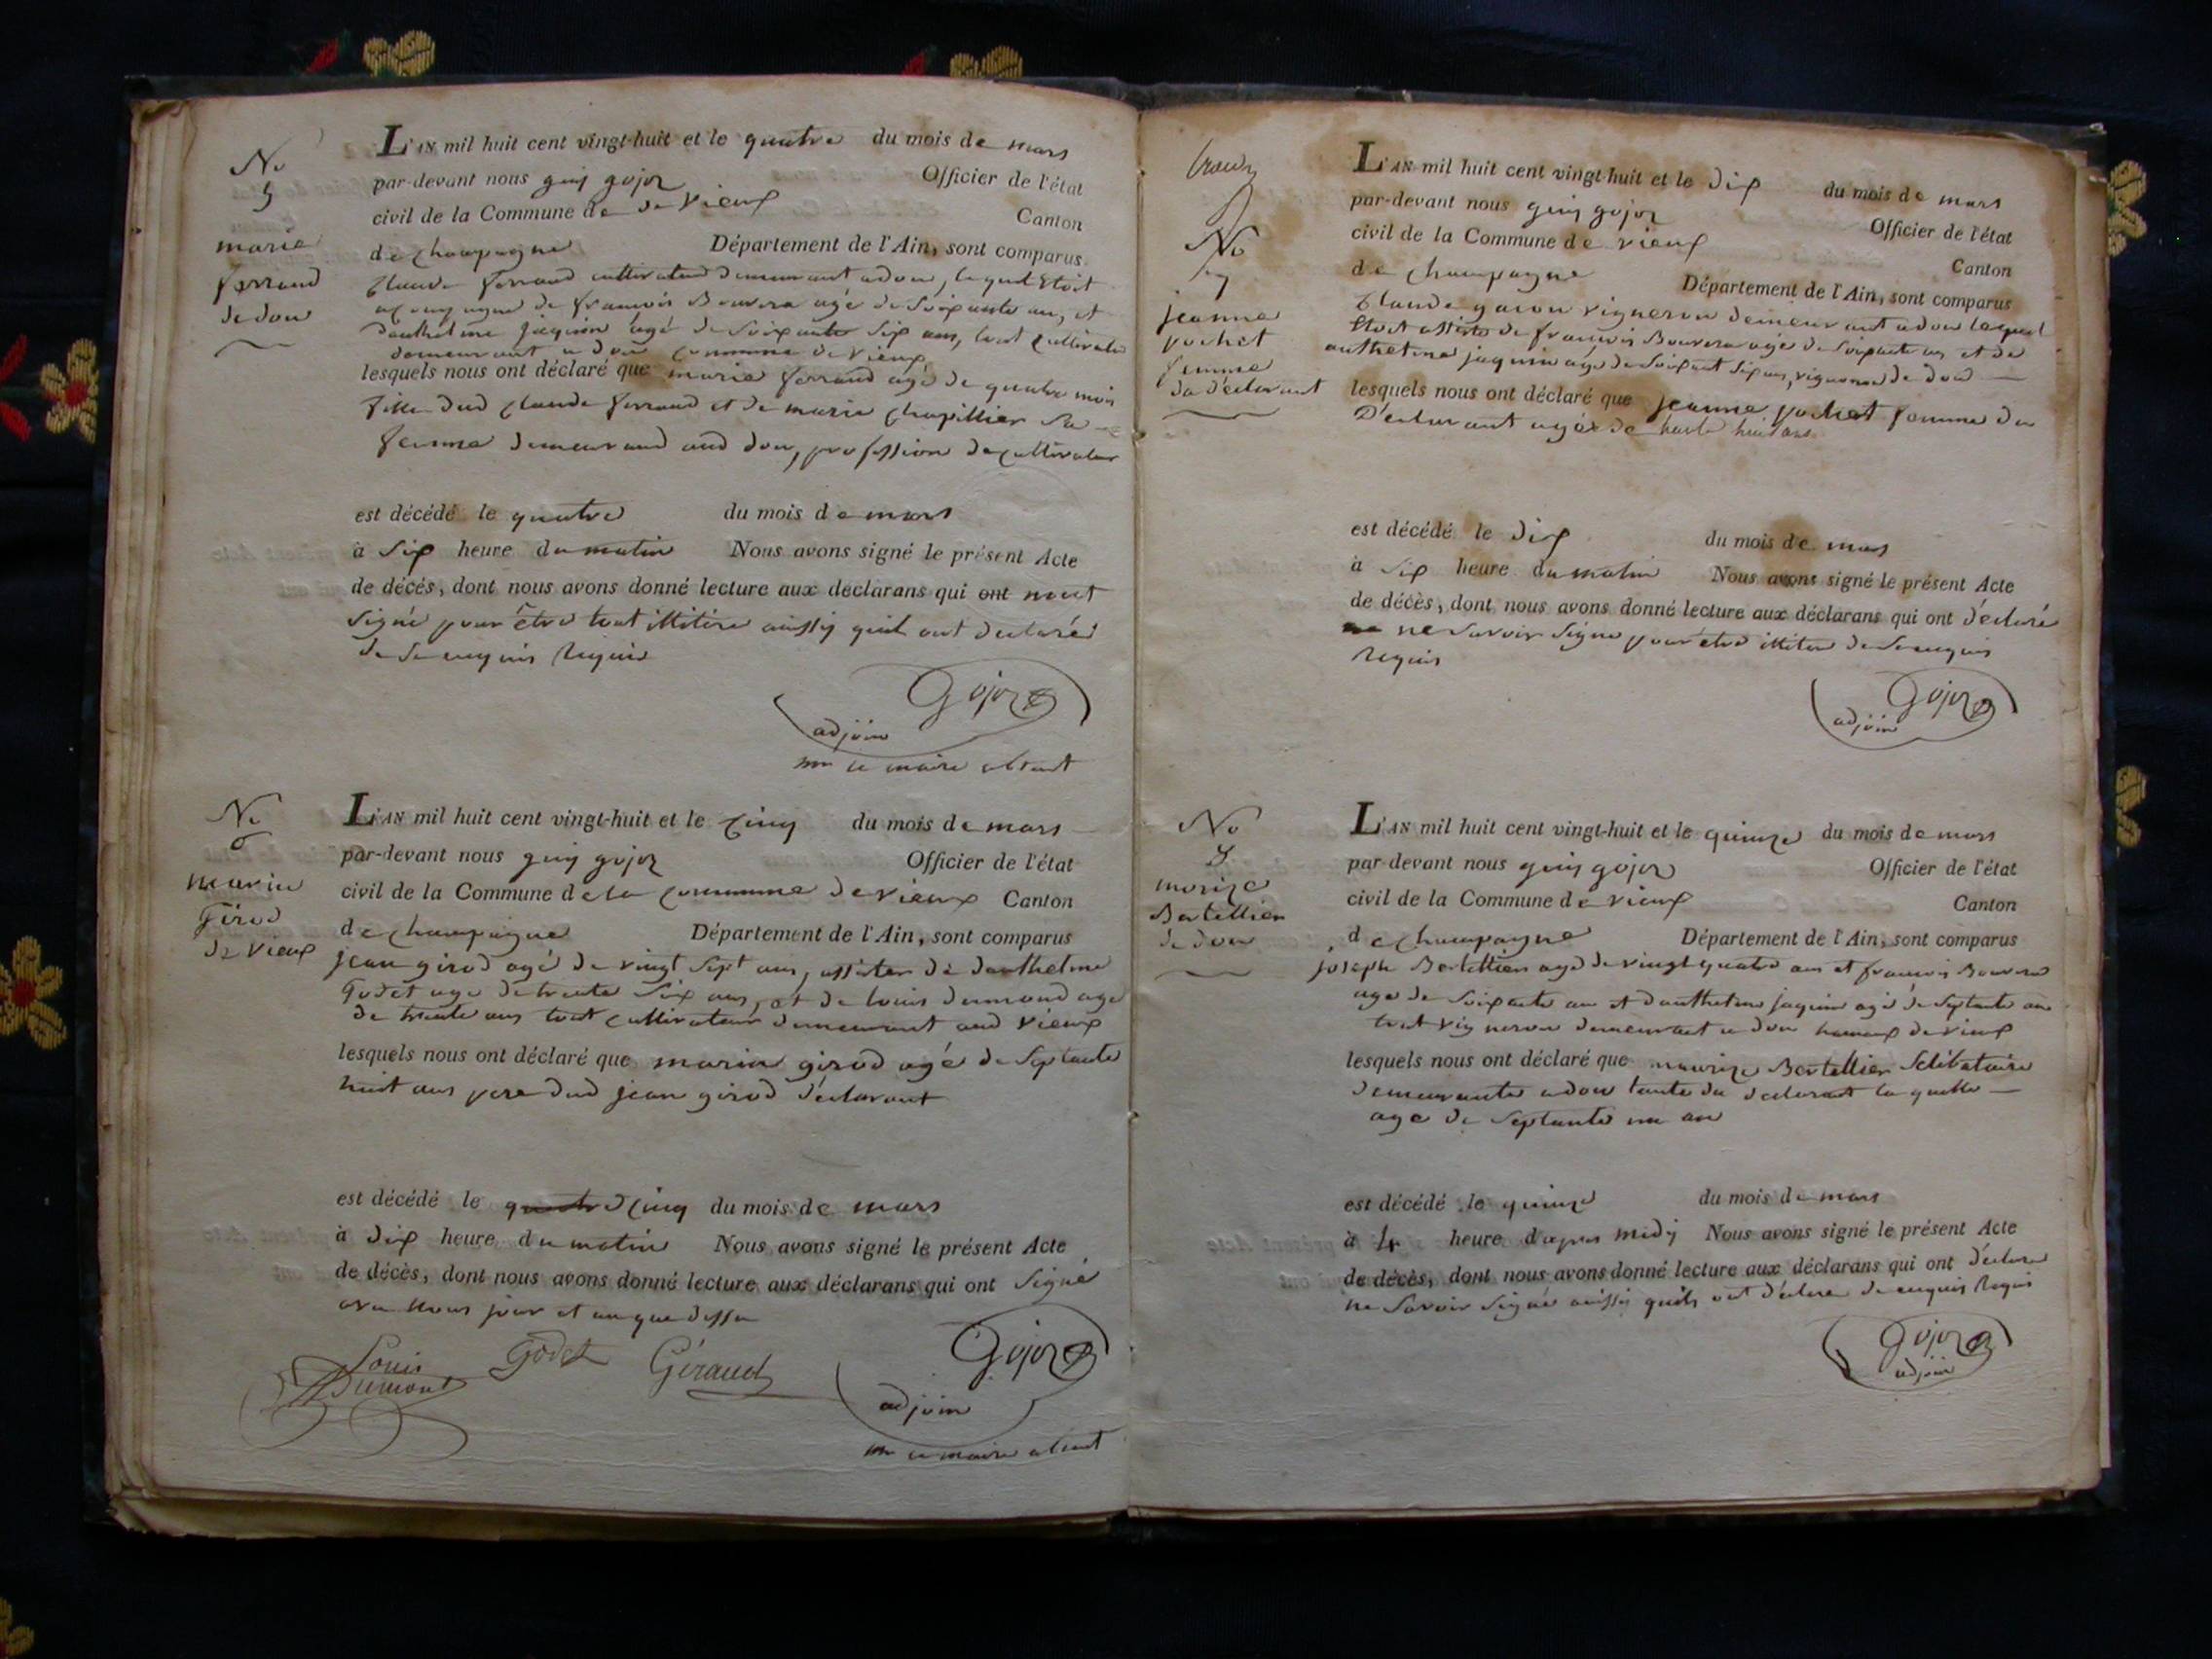 No
5
marie
ferrand
de don
L'AN mil huit cent vingt-huit et le quatre du mois de mars
par-devant nous guy gojoz Officier de l'état
civil de la Commune de de Vieux Canton
de champagne Département de l'Ain, sont comparus
Claude ferrand cultivateur demeurant a don, lequel Etoit
de françois Bouvera agé de Soixante an, et
danthelme jaquin agé de Soixante Six ans, tout cultivateur
demeurant a don commune de vieux
lesquels nous ont déclaré que marie ferrand agé de quatre mois
fille dud Claude ferrand et de marie Chapillier Sa
femme demeurand aud don, profession de cultivateur
est décédé le quatre du mois de mars
à Six heure du matin Nous avons signé le présent Acte
de décès, dont nous avons donné lecture aux déclarans qui ont nont
Signé pour être tout illitére aussy quil ont declaré
de de enquis Requis
Gojoz
adjoin
mr le maire absent
No
6
marin
Girod
de Vieux
L'AN mil huit cent vingt-huit et le Cinq du mois de mars
par-devant nous guy gojoz Officier de l'état
civil de la Commune de la Commune de vieux Canton
de champagne Département de l'Ain, sont comparus
jean girod agé de vingt Sept ans, assister de danthelme
Godet age de trente Six ans, et de louis dumond age
de trente ans tout cultivateur demeurant aud vieux
lesquels nous ont déclaré que marin girod agé de Septante
huit ans pere dud jean girod déclarant
est décédé le quatre Cinq du mois de mars
à dix heure du matin Nous avons signé le présent Acte
de décès, dont nous avons donné lecture aux déclarans qui ont Signé
avec Nous jour et an que dessu
Louis
Dumont
Godet
Géraud
Gojoz
adjoin
mr le maire absent
No
7
jeanne
pochet
femme
du déclarant
L'AN mil huit cent vingt-huit et le Dix du mois de mars
par-devant nous guy gojoz Officier de l'état
civil de la Commune de vieux Canton
de Champagne Département de l'Ain, sont comparus
Claude vigneron demeurant a don lequel
Etoit assisté de françois Bouvera age de Soixante an et de
anthelme jaquin agé de Soixante Six ans, vigneron de don
lesquels nous ont déclaré que jeanne pochet femme du
Déclarant agée de huit ans
est décédé le Dix du mois de mars
à Six heure du matin Nous avons signé le présent Acte
de décès, dont nous avons donné lecture aux déclarans qui ont déclaré
ne Savoir Signe pour être illitere de de enquis
Requis
Gojoz
adjoin
No
8
morize
Bertellier
de don
L'AN mil huit cent vingt-huit et le quinze du mois de mars
par-devant nous guy gojoz Officier de l'état
civil de la Commune de vieux Canton
de Champagne Département de l'Ain, sont comparus
joseph Bertellier agé de vingt quatre ans et françois Bouvera
age de Soixante an et danthelme jaquin agé de Septante an
tout vigneron demeurant a don hameau de vieux
lesquels nous ont déclaré que maurize Bertellier Selibataire
demeurante a don tante du declarant la quelle
age de Septante un an
est décédé le quinze du mois de mars
à 4 heure d'apres midy Nous avons signé le présent Acte
de décès, dont nous avons donné lecture aux déclarans qui ont déclaré
ne Savoir Signé aussy quils ont déclaré de enquis Requis
Gojoz
adjoin